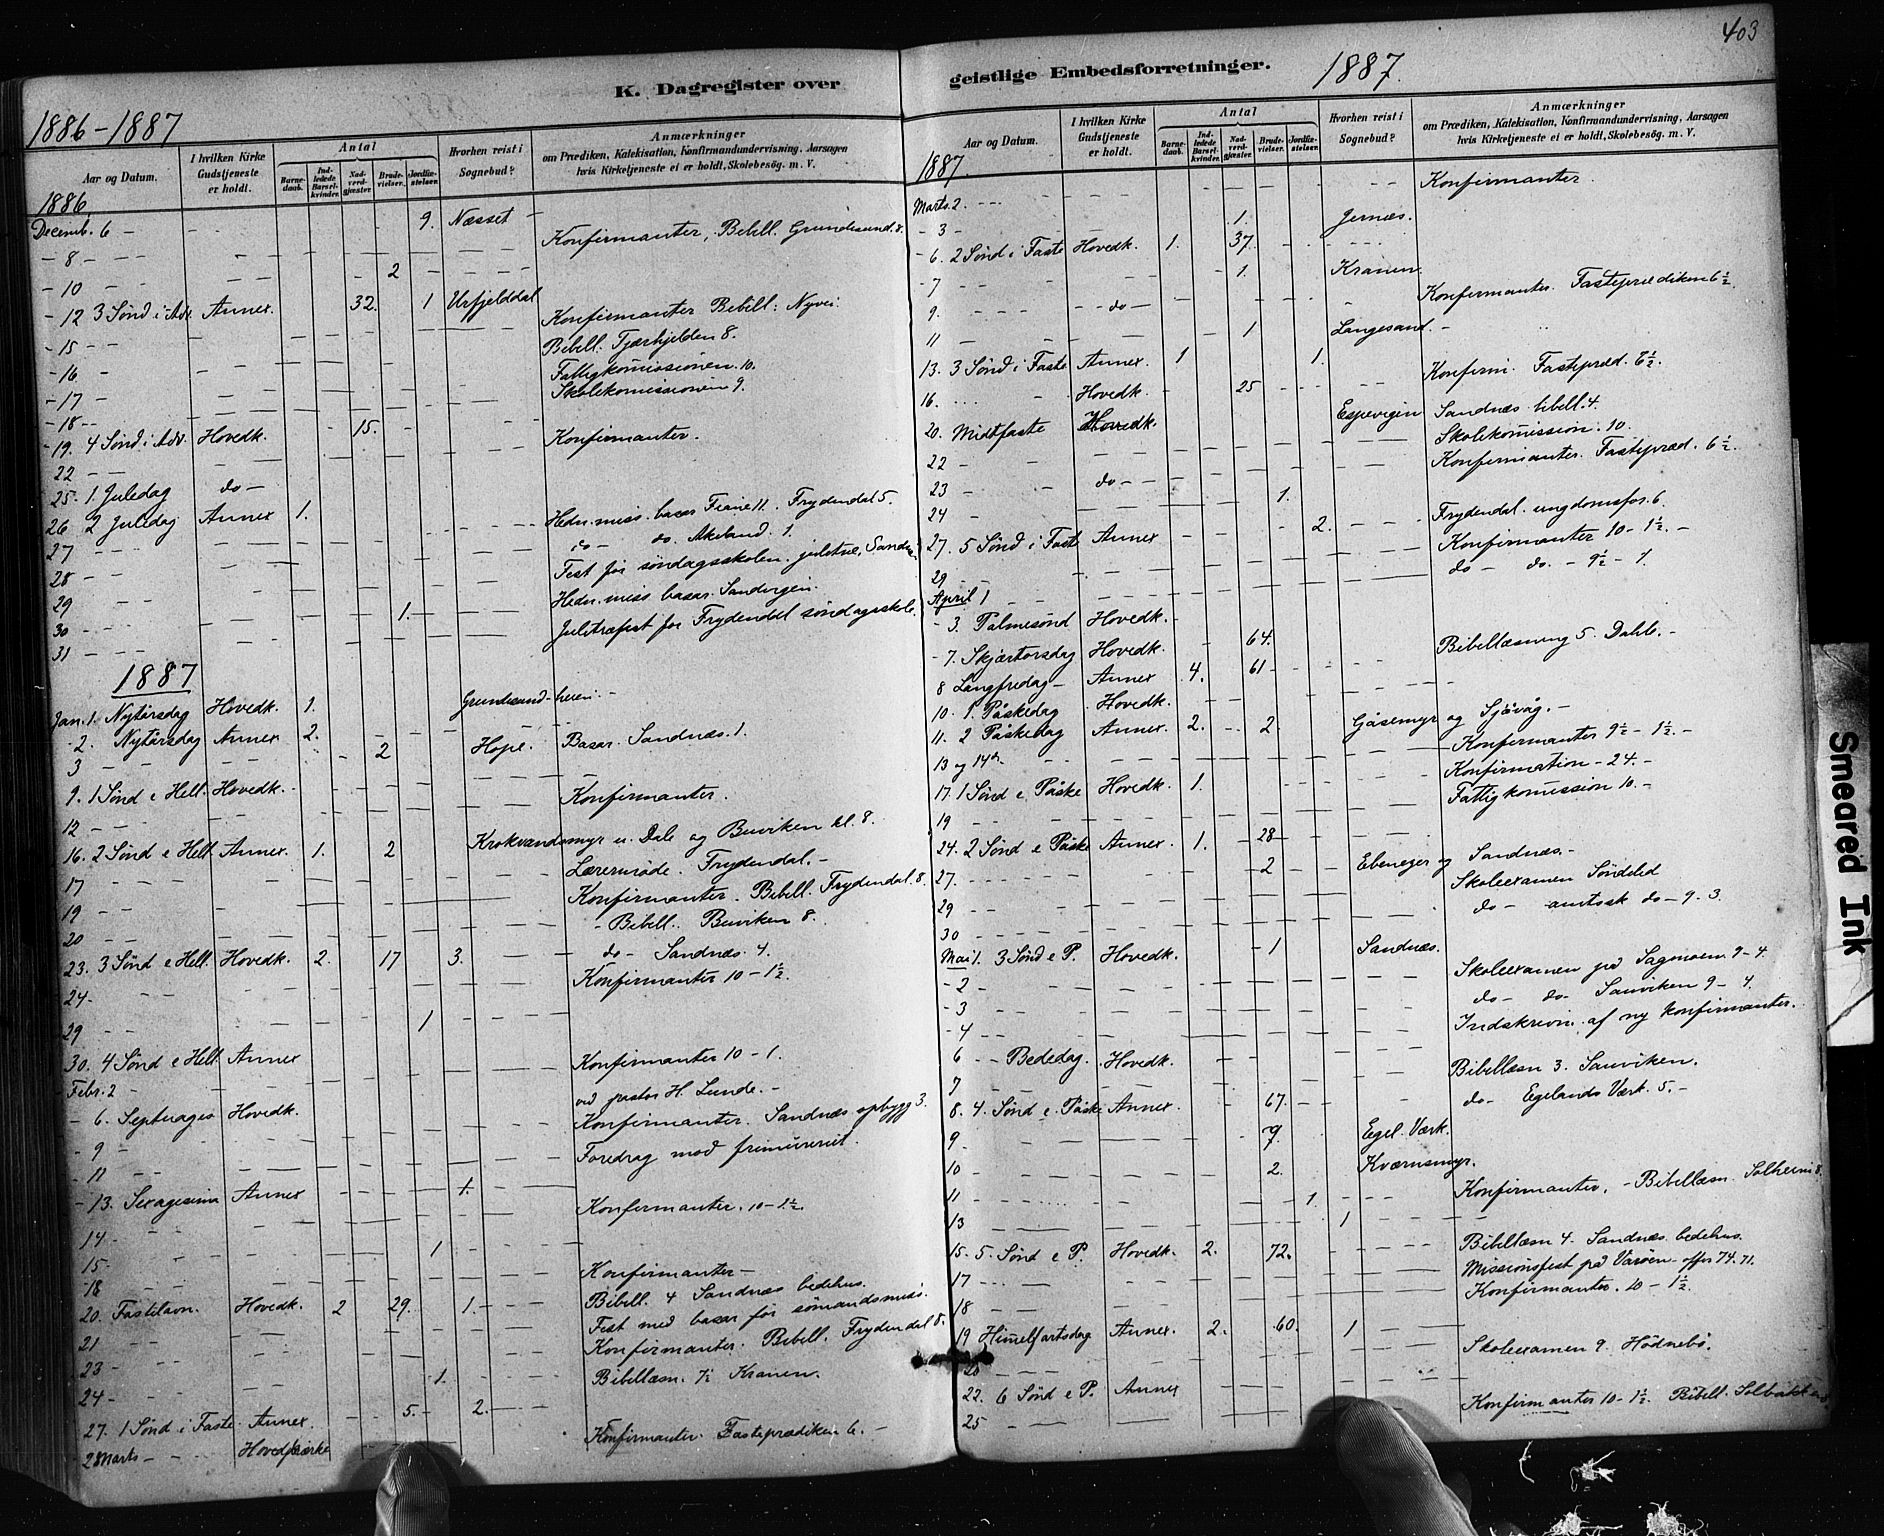 403
K. Dagregister over
1886-1887
Aar og Datum.
I hvilken Kirke Gudstjeneste er holdt.
Antal
Barne-daab.
Ind-ledede Barsel-kvinder.
Nad-verd-gjæster.
Brude-vielser.
Jordfæ-stelser.
Hvorhen reist i Sognebud?
Anmærkninger
om Prædiken, Katekisation, Konfirmandundervisning, Aarsagen
hvis Kirketjeneste ei er holdt, Skolebesög. m. V.
1886
Decemb. 6 - 9. Næsset -
- 8 - - - Konfirmanter, Bibell. Grundesund. 8.
- 10 - 2
- 12 3 Sønd i Adv. Annex. 32. 1 Urfjelddal
- 15 - - Konfirmanter Bibell: Nyvei
- 16 - Bibell. Tjærhjelden 8.
- 17 - Fattigkomissionen. 10.
- 18 - - Skolekomissionen 9.
- 19. 4 Sønd i Adv. Hovedk. 15.
22 - - Konfirmanter.
25. 1. Juledag do -
26 2 Juledag Annex 1.
27 - - - Hedn. miss. basar Fiane 11. Frydendal 5.
28 - - do - do. Akeland. 1.
29 - - Fest for søndagsskolen. juletræ, Sandn
30 - - - Hedn. miss basar. Sandvigen.
31 - - - 1. Juletræfest for Frydendal søndagsskole.
1887
Jan. 1. Nytårsdag Hovedk. 1. Grundesund-heien -
- 2. Nytårsdag Annex 2.
3 - - 2 Hope. Basar. Sandnæs. 1.
9. 1 Sønd e Hell. Hovedk. -
12 - - - Konfirmanter.
16. 2 Sønd e Hell Annex. 1. 2 Krokvandsmyr u. Dale og Buviken kl. 8.
17 - - Læremøde. Frydendal. -
19 - - Konfirmanter. Bibell. Frydendal. 8.
20 - - - Bibell. Buviken 8.
23. 3 Sønd e Hell. Hovedk. 2. 17 3. do - Sandnæs. 4.
24 - Konfirmanter 10 - 1½.
29 - - 1
30. 4 Sønd e Hell Annex
Febr. 2 - Konfirmanter 10 - 1.
- 6. Septuages Hovedk. ved pastor H. Lunde. -
- 9 - Konfirmanter. Sandnæs opbygg 3.
- 11 - - Foredrag mod frimureriet.
- 13. Sexagesima Annex 1.
14 - Konfirmanter. 10 - 1½.
15 - 1
18 - Konfirmanter -
20. Fastelavn. Hovedk. 2 29. 1. - Bibell. 4 Sandnæs bedehus.
21 - Fest med basar for sømandsmiss.
23 - Konfirmanter. Bibell. Frydendal 8.
24 - 1. Bibellæsn. 7½ Kranen.
27. 1 Sønd i Faste. Annex. 5. 2.
2 Marts - Hovedkirke Konfirmanter. Fasteprædiken 6. -
geistlige Embedsforretninger. 1887.
Aar og Datum.
I hvilken Kirke Gudstjeneste er holdt.
Antal
Barne-daab.
Ind-ledede Barsel-kvinder.
Nad-verd-gjæster.
Brude-vielser.
Jordfæ-stelser.
Hvorhen reist i Sognebud?
Anmærkninger
om Prædiken, Katekisation, Konfirmandundervisning, Aarsagen
hvis Kirketjeneste ei er holdt, Skolebesög. m. V.
1887.
Marts. 2. - - - Konfirmanter.
- 3 - 1. Jernæs.
- 6. 2 Sønd i Faste Hovedk. 1. 37.
- 7 - - 1. Kranen.
9. - - - - do - Konfirmanter. Fasteprædiken 6½.
11 - - 1 Langesand. -
13. 3 Sønd i Faste Annex. 1 1.
16. Hovedk. 25 Konfirm. Fastepræd. 6½.
20. Midtfaste Hovedk. Espevigen Sandnæs. bibell. 4.
22 - - Skolekomission. 10.
23 - - do - - Konfirmanter. Fastepræd. 6½.
24 - 1.
27. 5 Sønd i Faste Annex 2. Frydendal. ungdomsfor. 6.
29 - Konfirmanter 10 - 1½. -
April 1 - do - do. - 9½ - 1.
- 3. Palmesønd Hovedk. -
- 7. Skjærtorsdag Hovedk. 64. Bibellæsning 5. Dahle. -
8 Langfredag - Annex 4. 61 -
10. 1. Påskedag Hovedk.
11. 2 Påskedag Annex. 2. 2. Gåsemyr og Sjåvåg. -
13 og 14de. Konfirmanter 9½ - 1½. -
17. 1 Sønd e. Påske Hovedk. 1. Konfirmation - 24. -
19 - Fattigkomission 10. -
24. 2 Sønd e Påske Annex. 1. 28 -
27. - - - 2 Ebenezer og Sandnæs. -
29 - - Skoleexamen Søndeled
30 - - do - amtssk do - 9. 3.
Mai 1. 3 Sønd e P. Hovedk. 1 Sandnæs.
- 2 - Skoleexamen på Sagmoen 9 - 4.
- 3 - do - do - Sauviken 9 - 4.
- 4 - Indskrivn. af ny konfirmanter.
6 - - Bededag. Hovedk.
7 - Bibellæsn 3. Sauviken.
8. 4. Sønd e. Påske Annex. 67. do - Egelands Værk. 5. -
9 - 7. Egel. Værk.
10 - 2. Kværnsmyr.
11 - 1 Konfirmanter. - Bibellæsn. Solheim 8.
13 - 1
15. 5. Sønd e P. Hovedk. 2. 72. Bibellæsn 4. Sandnæs. bedehus.
17 - - - Missionsfest på Varøen - offer 74.71.
18 - - Konfirmanter. 10 - 1½.
19 Himelfartsdag Annex. 2. 60. 1
20 - Skoleexamen 9. Hødnebø.
22. 6 Sønd e P. Annex
25 - Konfirmanter 10 - 1½. Bibell. Solbakken
Smeared Ink